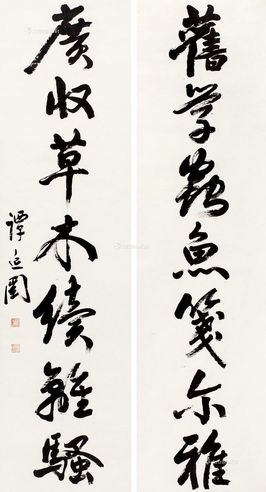 舊学蟲魚箋尔雅
廣收草木續離騷
譚延闓